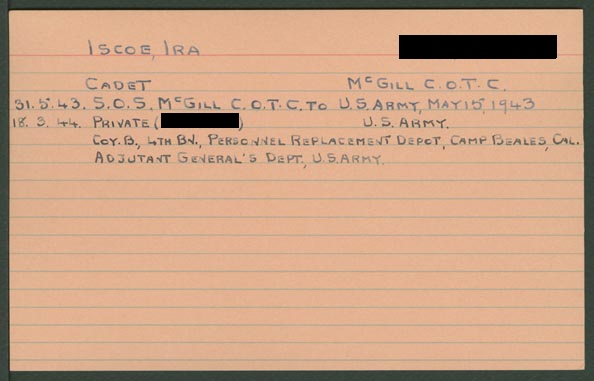 ISCOE, IRA
CADET MCGILL C.O.T.C.
31.5.43. S.O.S. MCGILL C.O.T.C. TO U.S. ARMY, MAY 15, 1943
18.3.44. PRIVATE ( ) U.S. ARMY.
COY.B., 4TH BN., PERSONNEL REPLACEMENT DEPOT, CAMP BEALES, CAL.
ADJUTANT GENERAL'S DEPT, U.S. ARMY.